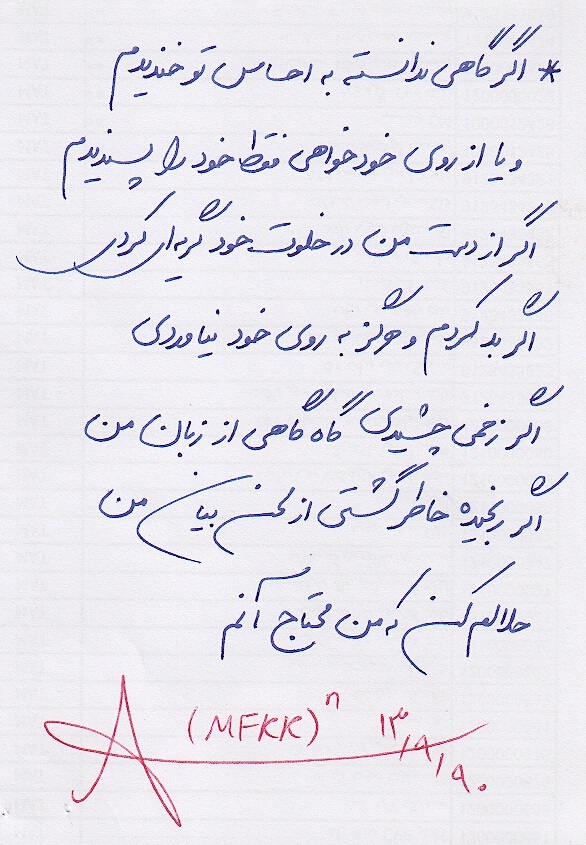 * اگر گاهی ندانسته به احساس تو خندیدم
و یا از روی خودخواهی فقط خود را پسندیدم
اگر از دست من در خلوت خود گریه‌ای کردی
اگر بد کردم و هرگز به روی خود نیاوردی
اگر زخمی چشیدی گاه گاهی از زبان من
اگر رنجیده خاطر گشتی از لحن بیان من
حلالم کن که من محتاج آنم
(MFKK)ⁿ ۱۳/۹/۹۰